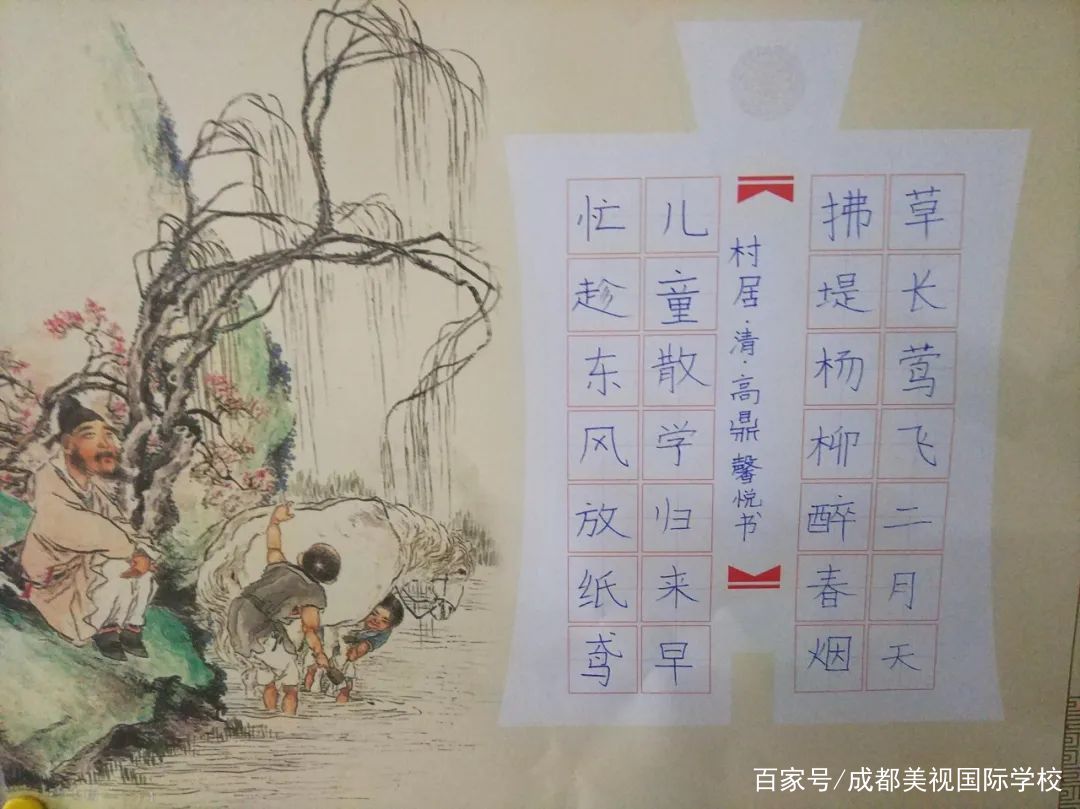 草长莺飞二月天
拂堤杨柳醉春烟
村居·清·高鼎 馨悦书
儿童散学归来早
忙趁东风放纸鸢
百家号/成都美视国际学校